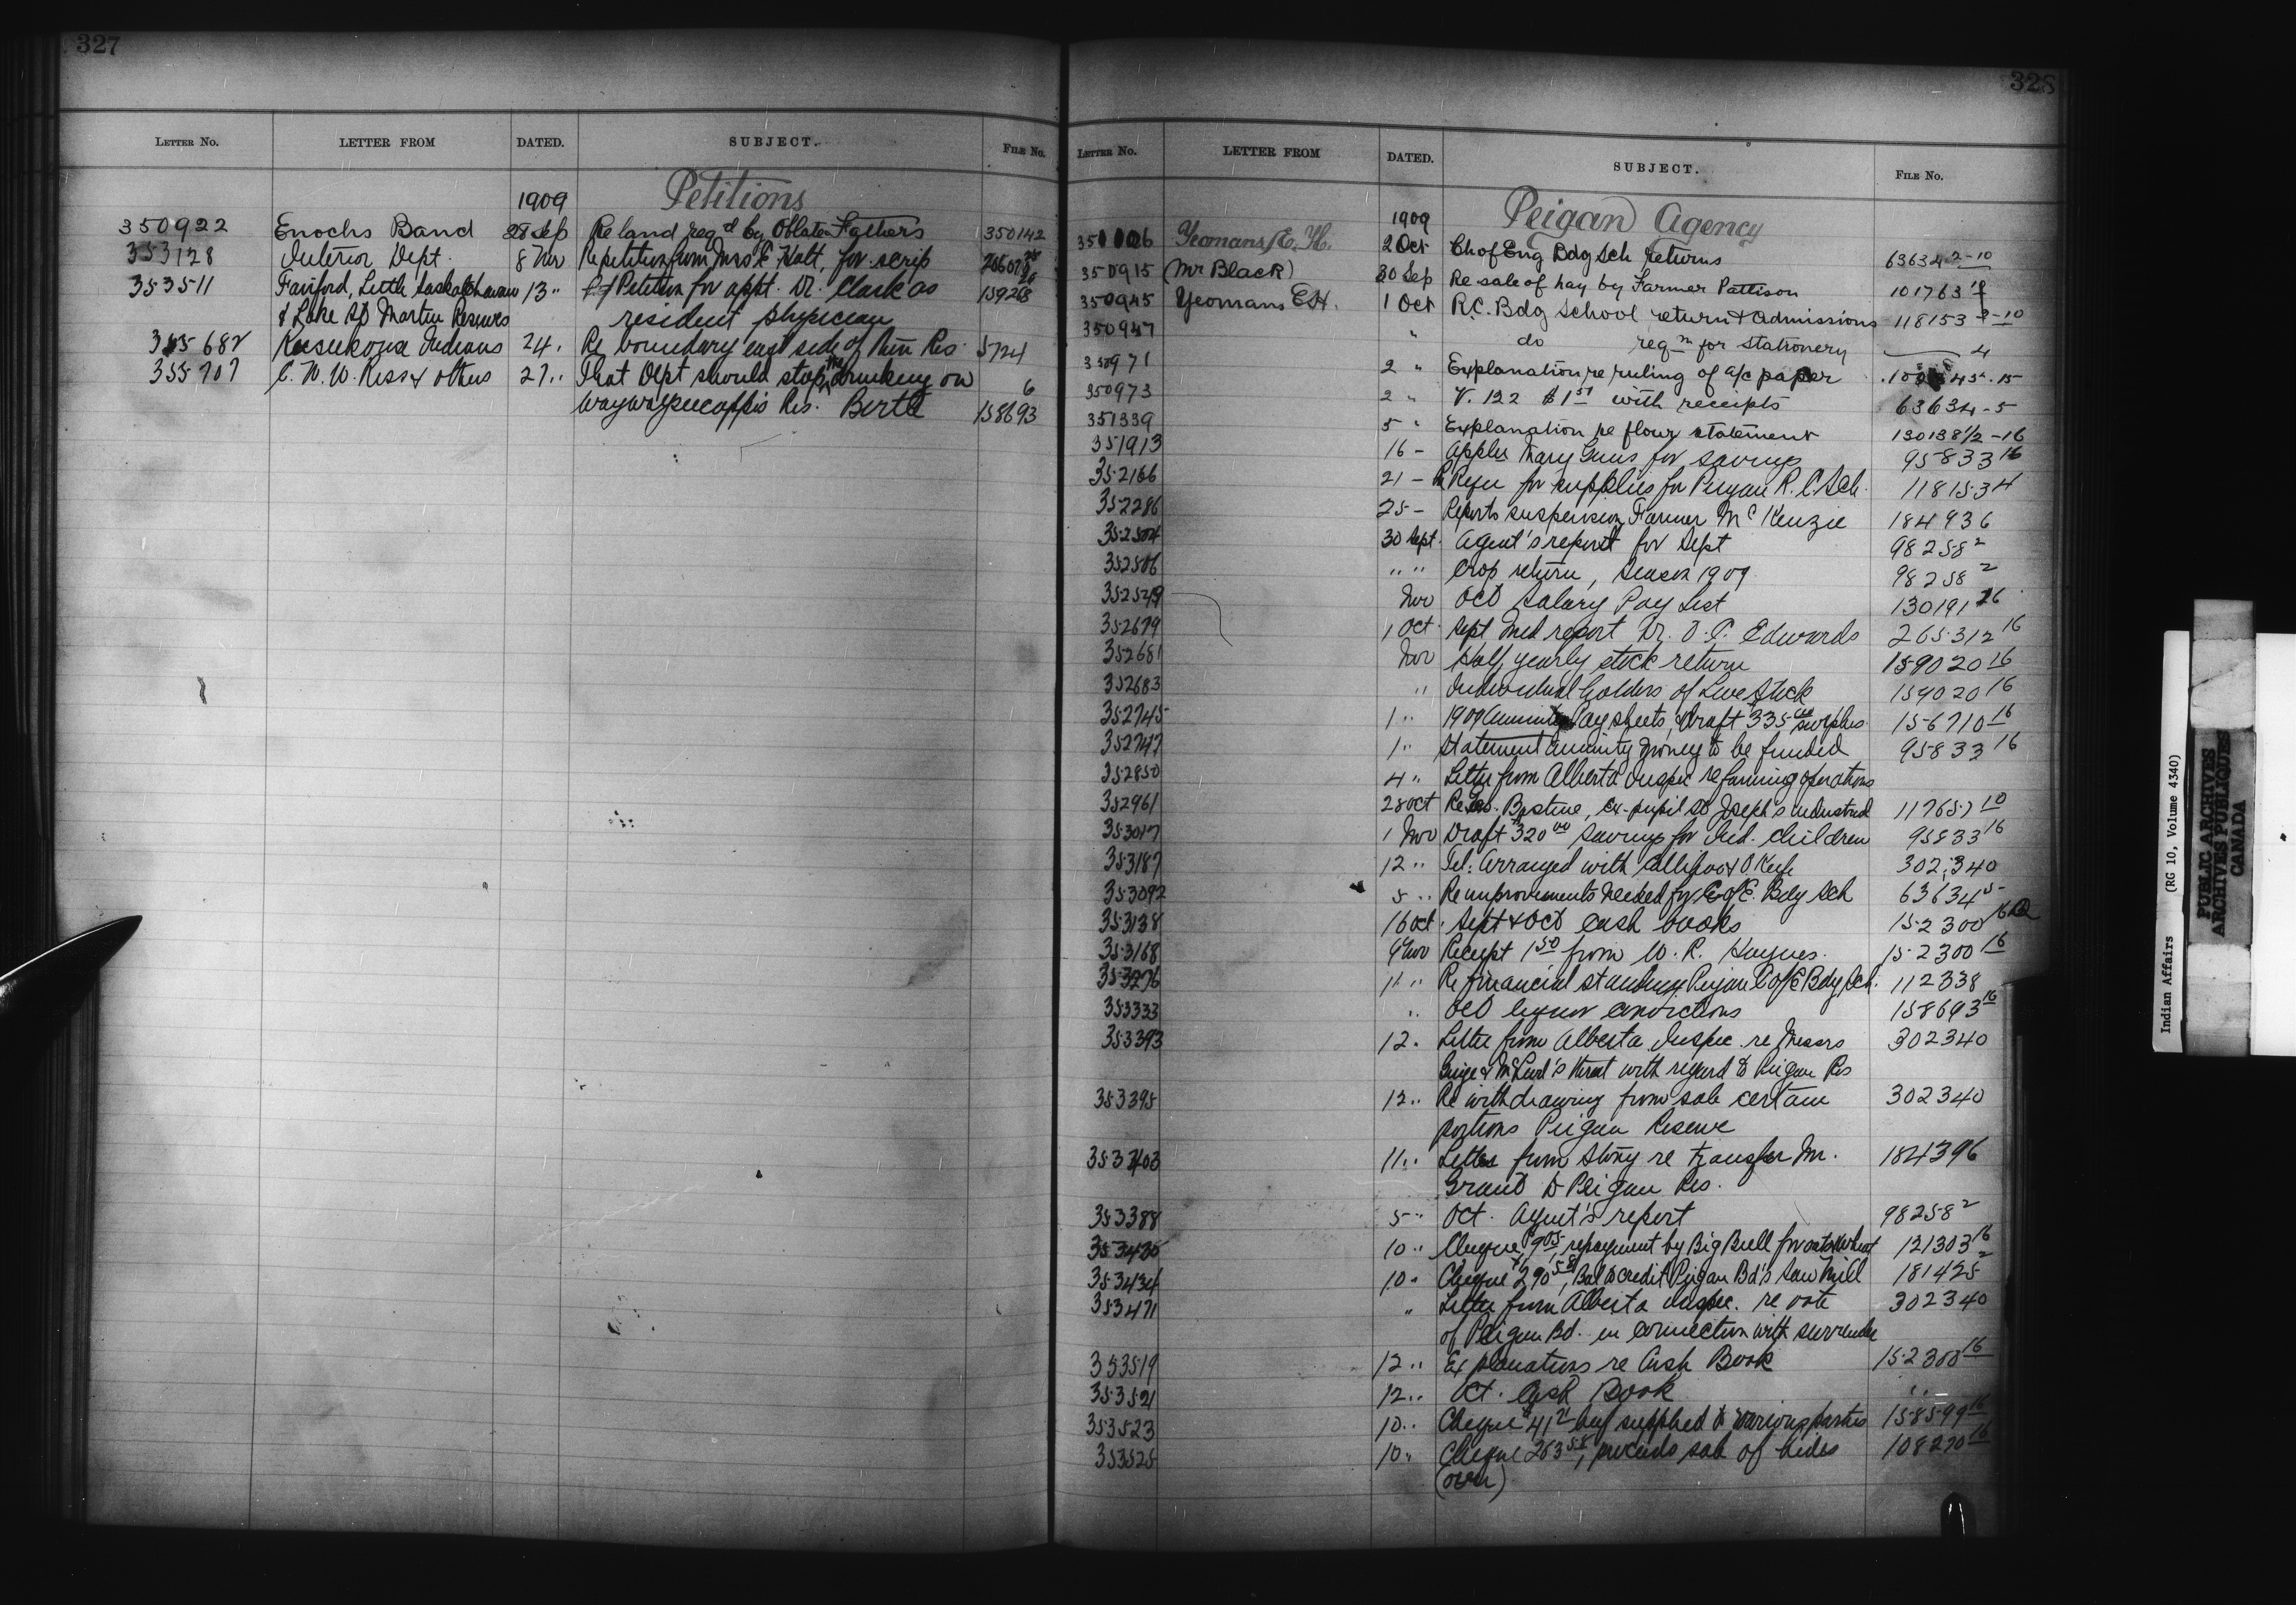 327
LETTER NO. LETTER FROM DATED. SUBJECT. FILE NO.
1909 Petitions
350922 Enochs Band 28 Sep Re land reqd by Oblate Fathers 350142
353128 Interior Dept. 8 Nov Re petition from Mrs E Hatt, for scrip
353511 Fairford, Little Saskatchewan 13 " Petition for appt. Dr. Clark as 159268
& Lake St Martin Reserves resident physician
355682 Keesekouse Indians 24 " Re boundary east side of their Res. 5724
355707 C. W. W. Ross & others 27 " That Dept should stop the drunkeng on 6
Waywayseecappo's Res. Birtle 158693
328
LETTER NO. LETTER FROM DATED. SUBJECT. FILE NO.
1909 Peigan Agency
Yeomans, E. H. 2 Oct Ch of Eng Bdg Sch returns 63634 2-10
350915 (Mr Black) 30 Sep Re sale of hay by Farmer Pattison 101763
350945 Yeomans E.H. 1 Oct R.C. Bdg School return & admissions 118153
350947 " do reqn for stationery 4
350971 2 " Explanation re ruling of a/c paper
350973 2 " V. 122 $1 st with receipts 63634-5
351339 5 " Explanation re flour statement 130138 1/2-16
351913 16 - Applcn Mary Guns for savings 95833 16
352166 21 - Requ for supplies for Peigan R.C. Sch. 118153 4
352286 25 - Reports suspension Farmer McKenzie 184936
352504 30 Sept. Agent's report for Sept 98258 2
352506 " " Crop return, Season 1909 98258 2
352549 Nov Oct Salary Pay List 130191 16
352679 1 Oct. Sept Med report Dr. O. C. Edwards 265312 16
352681 Nov Half yearly stock return 159020 16
352683 " Individual holders of Live Stock 159020 16
352745 1 " 1909 Annuity Pay sheets, & draft $335 00 surplus 156710 16
352747 1 " Statement annuity money to be funded 95833 16
352850 4 " Letter from Alberta Inspec re farming operations
352961 28 Oct Re Jos. Bastine, ex-pupil St Joseph's Industrial 117657 10
353017 1 Nov Draft $320 00 Savings for Ind. children 95833 16
353187 12 " Tel: Arranged with 302,340
353092 5 " Re improvements needed for C of E. Bdg Sch 63634 5
353138 16 Oct. Sept & Oct cash books 152300 16
353168 9 Nov Receipt 1 50 from W. R. Haynes. 152300 16
353276 11 " Re financial standing Peigan C of E Bdg Sch. 112338
353333 " Oct liquor convictions 158693 16
353393 12 " Letter from Alberta Inspec. re Messrs 302340
threat with regard to Peigan Res
353395 12 " Re withdrawing from sale certain 302340
portions Peigan Reserve
353403 11 " Letter from Stony re transfer Mr. 184396
Grant to Peigan Res.
353388 5 " Oct. Agent's report 98258 2
353435 10 " Cheque $9 05 repayment by Big Bull for oats & wheat 121303 16
353434 10 " Cheque $290 58, Bal to credit Peigan Bd's Saw Mill 181425 2
353471 " Letter from Alberta Inspec. re vote 302340
of Peigan Bd. in connection with surrender
353519 12 " Explanations re Cash Book 152300 16
353521 12 " Oct. Cash Book " "
353523 10 " Cheque $41 21 beef supplied to various parties 158599 16
353525 10 " Cheque 263 58, proceeds sale of hides 108270 16
(over)
Indian Affairs (RG 10, Volume 4340)
PUBLIC ARCHIVES
ARCHIVES PUBLIQUES
CANADA